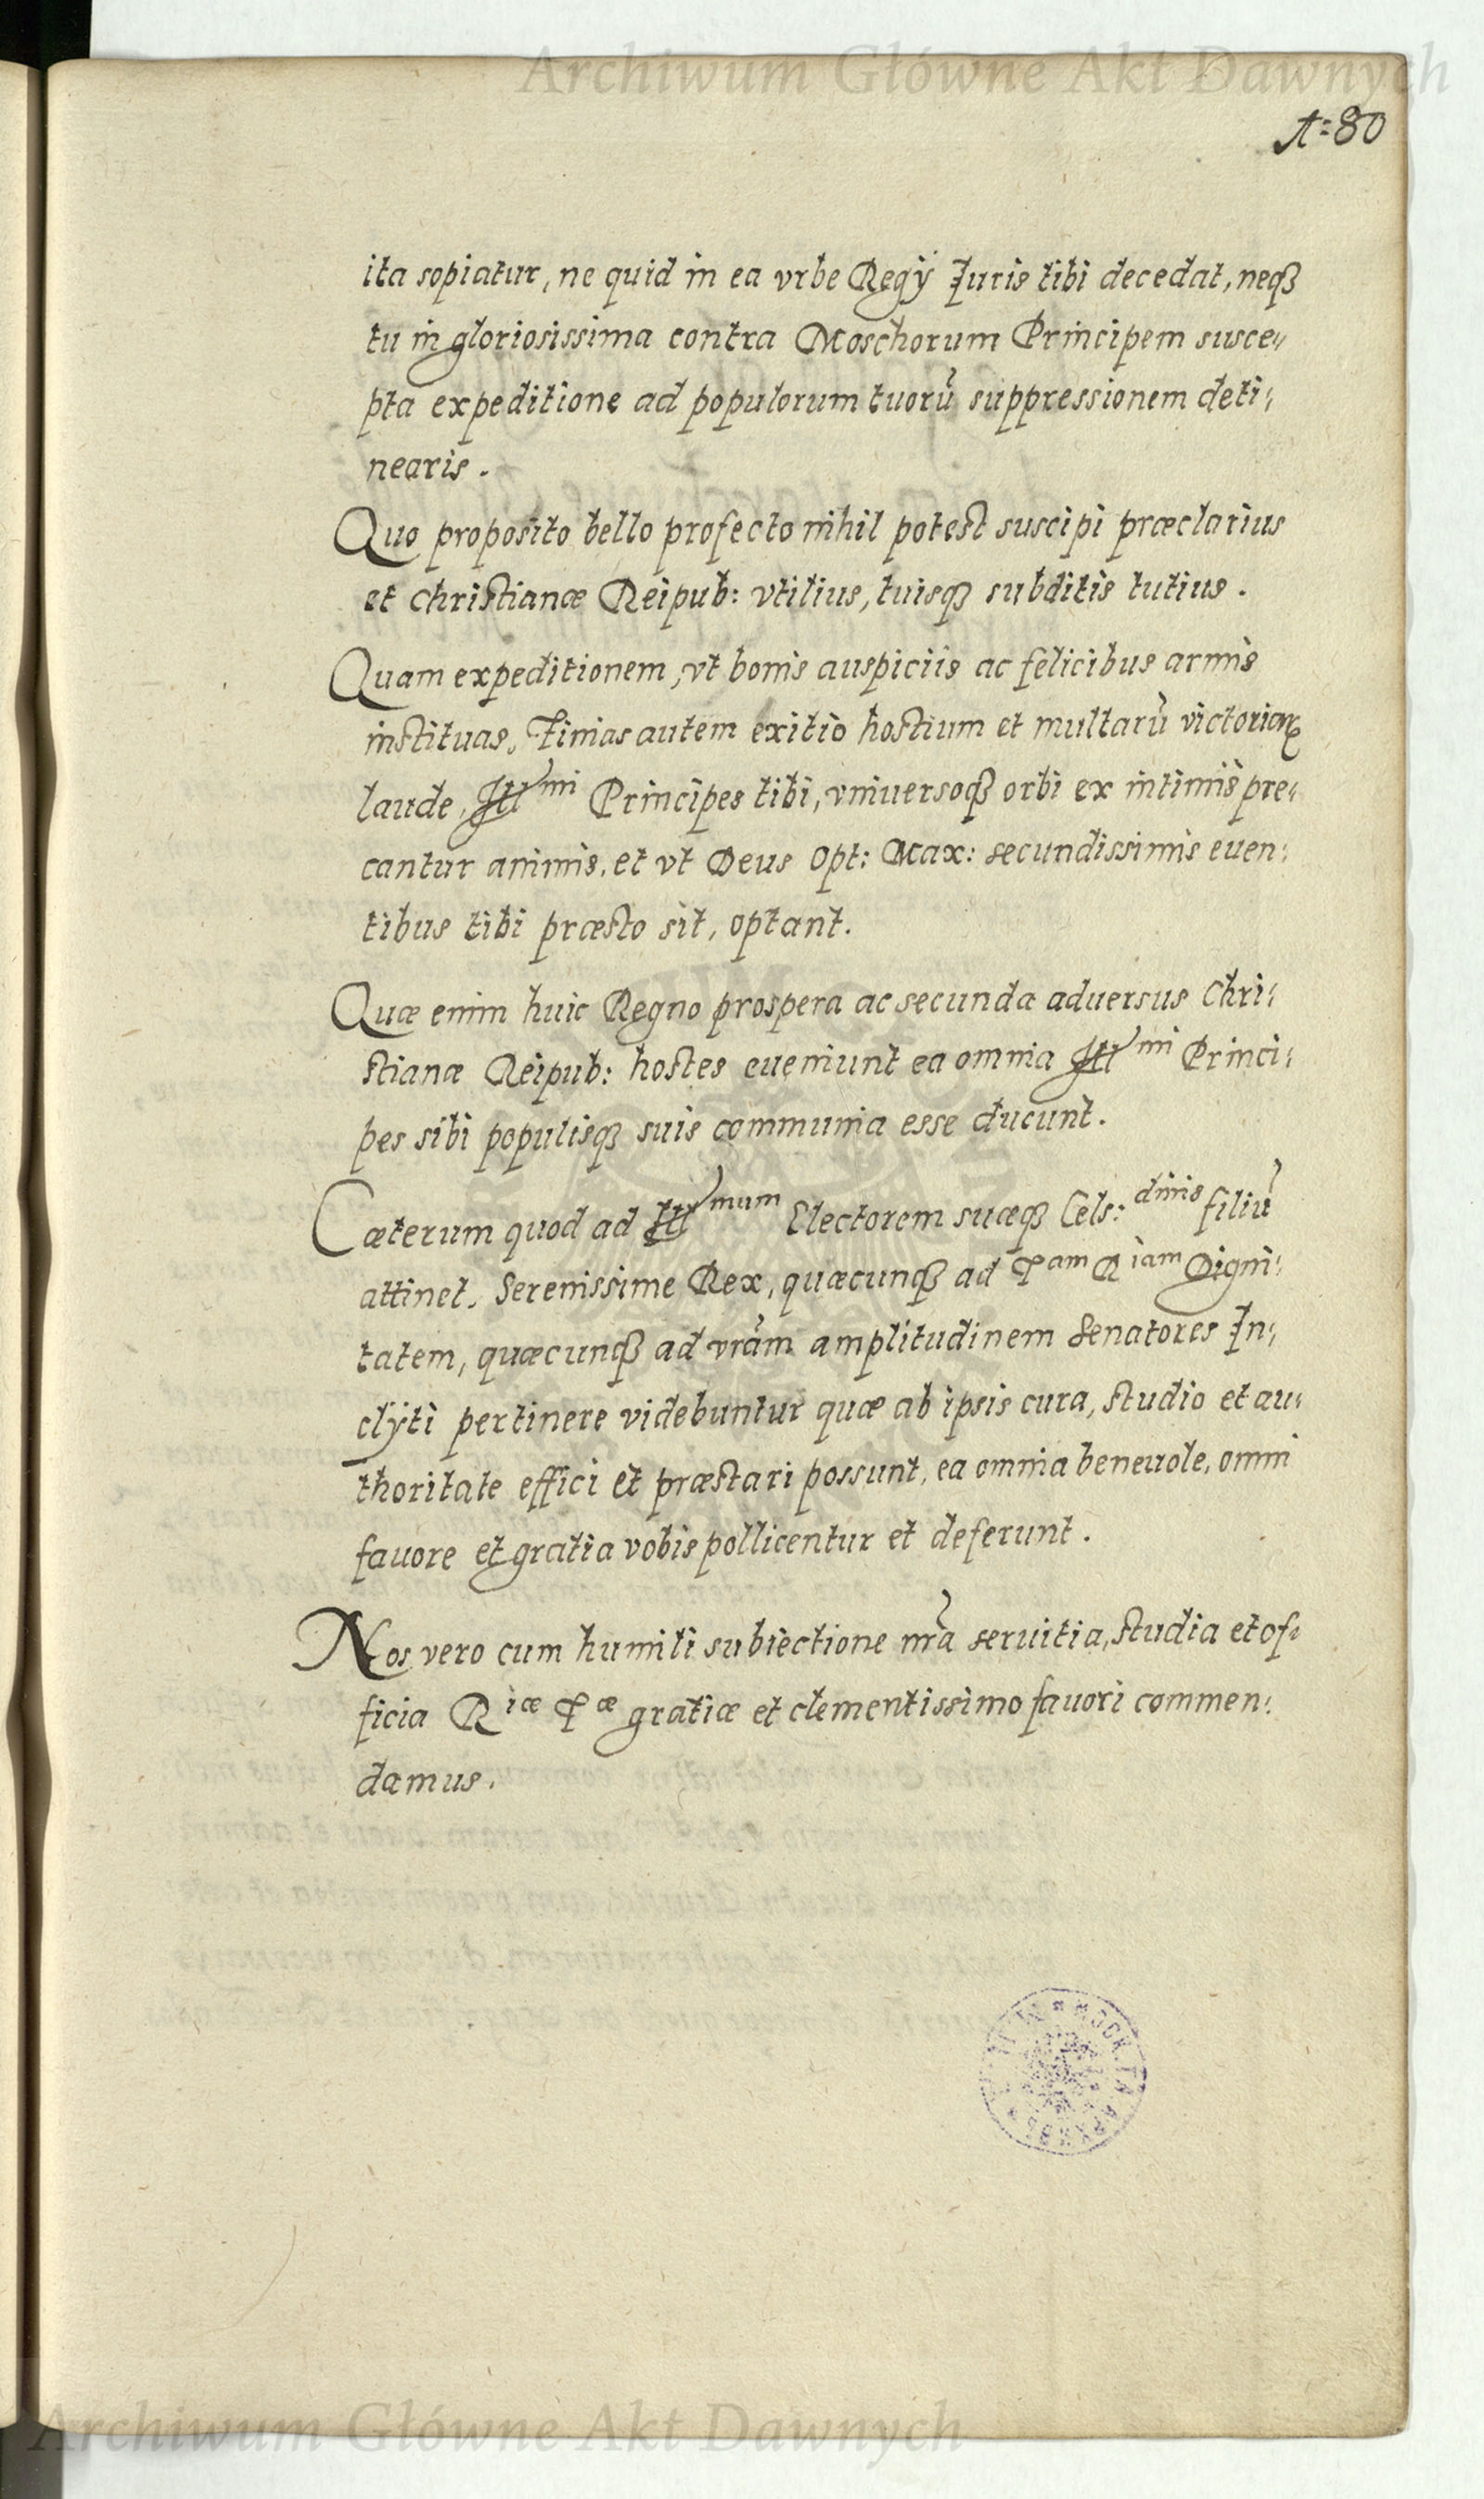 Archiwum Główne Akt Dawnych
A=80
ita sopiatur, ne quid in ea vrbe Regÿ Iuris tibi decedat, neqꝫ
tu in gloriosissima contra Moschorum Principem susce„
pta expeditione ad populorum tuorũ suppressionem deti„
nearis.
Quo proposito bello profecto nihil potest suscipi præclarius
et Christianæ Reipub: vtilius, tuisqꝫ subditis tutius.
Quam expeditionem, vt bonis auspiciis ac felicibus armis
instituas, Finias autem exitio hostium et multarũ victoriaꝝ
laude, Illmi Principes tibi, vniuersoqꝫ orbi ex intimis pre„
cantur animis, et vt Deus Opt: Max: secundissimis euen„
tibus tibi præsto sit, optant.
Quæ enim huic Regno prospera ac secunda aduersus Chri„
stianæ Reipub: hostes eueniunt ea omnia Illmi Princi„
pes sibi populisqꝫ suis communia esse ducunt.
Cæterum quod ad Illmum Electorem suæqꝫ Cels:dinis filiũ
attinet, Serenissime Rex, quæcunqꝫ ad Tam Riam Digni„
tatem, quæcunqꝫ ad vram amplitudinem Senatores In„
clÿti pertinere videbuntur quæ ab ipsis cura, studio et au„
thoritate effici et præstari possunt, ea omnia beneuole, omni
fauore et gratia vobis pollicentur et deferunt.
Nos vero cum humili subiectione nra seruitia, studia et of„
ficia Riæ Tæ gratiæ et clementissimo fauori commen„
damus.
Archiwum Główne Akt Dawnych